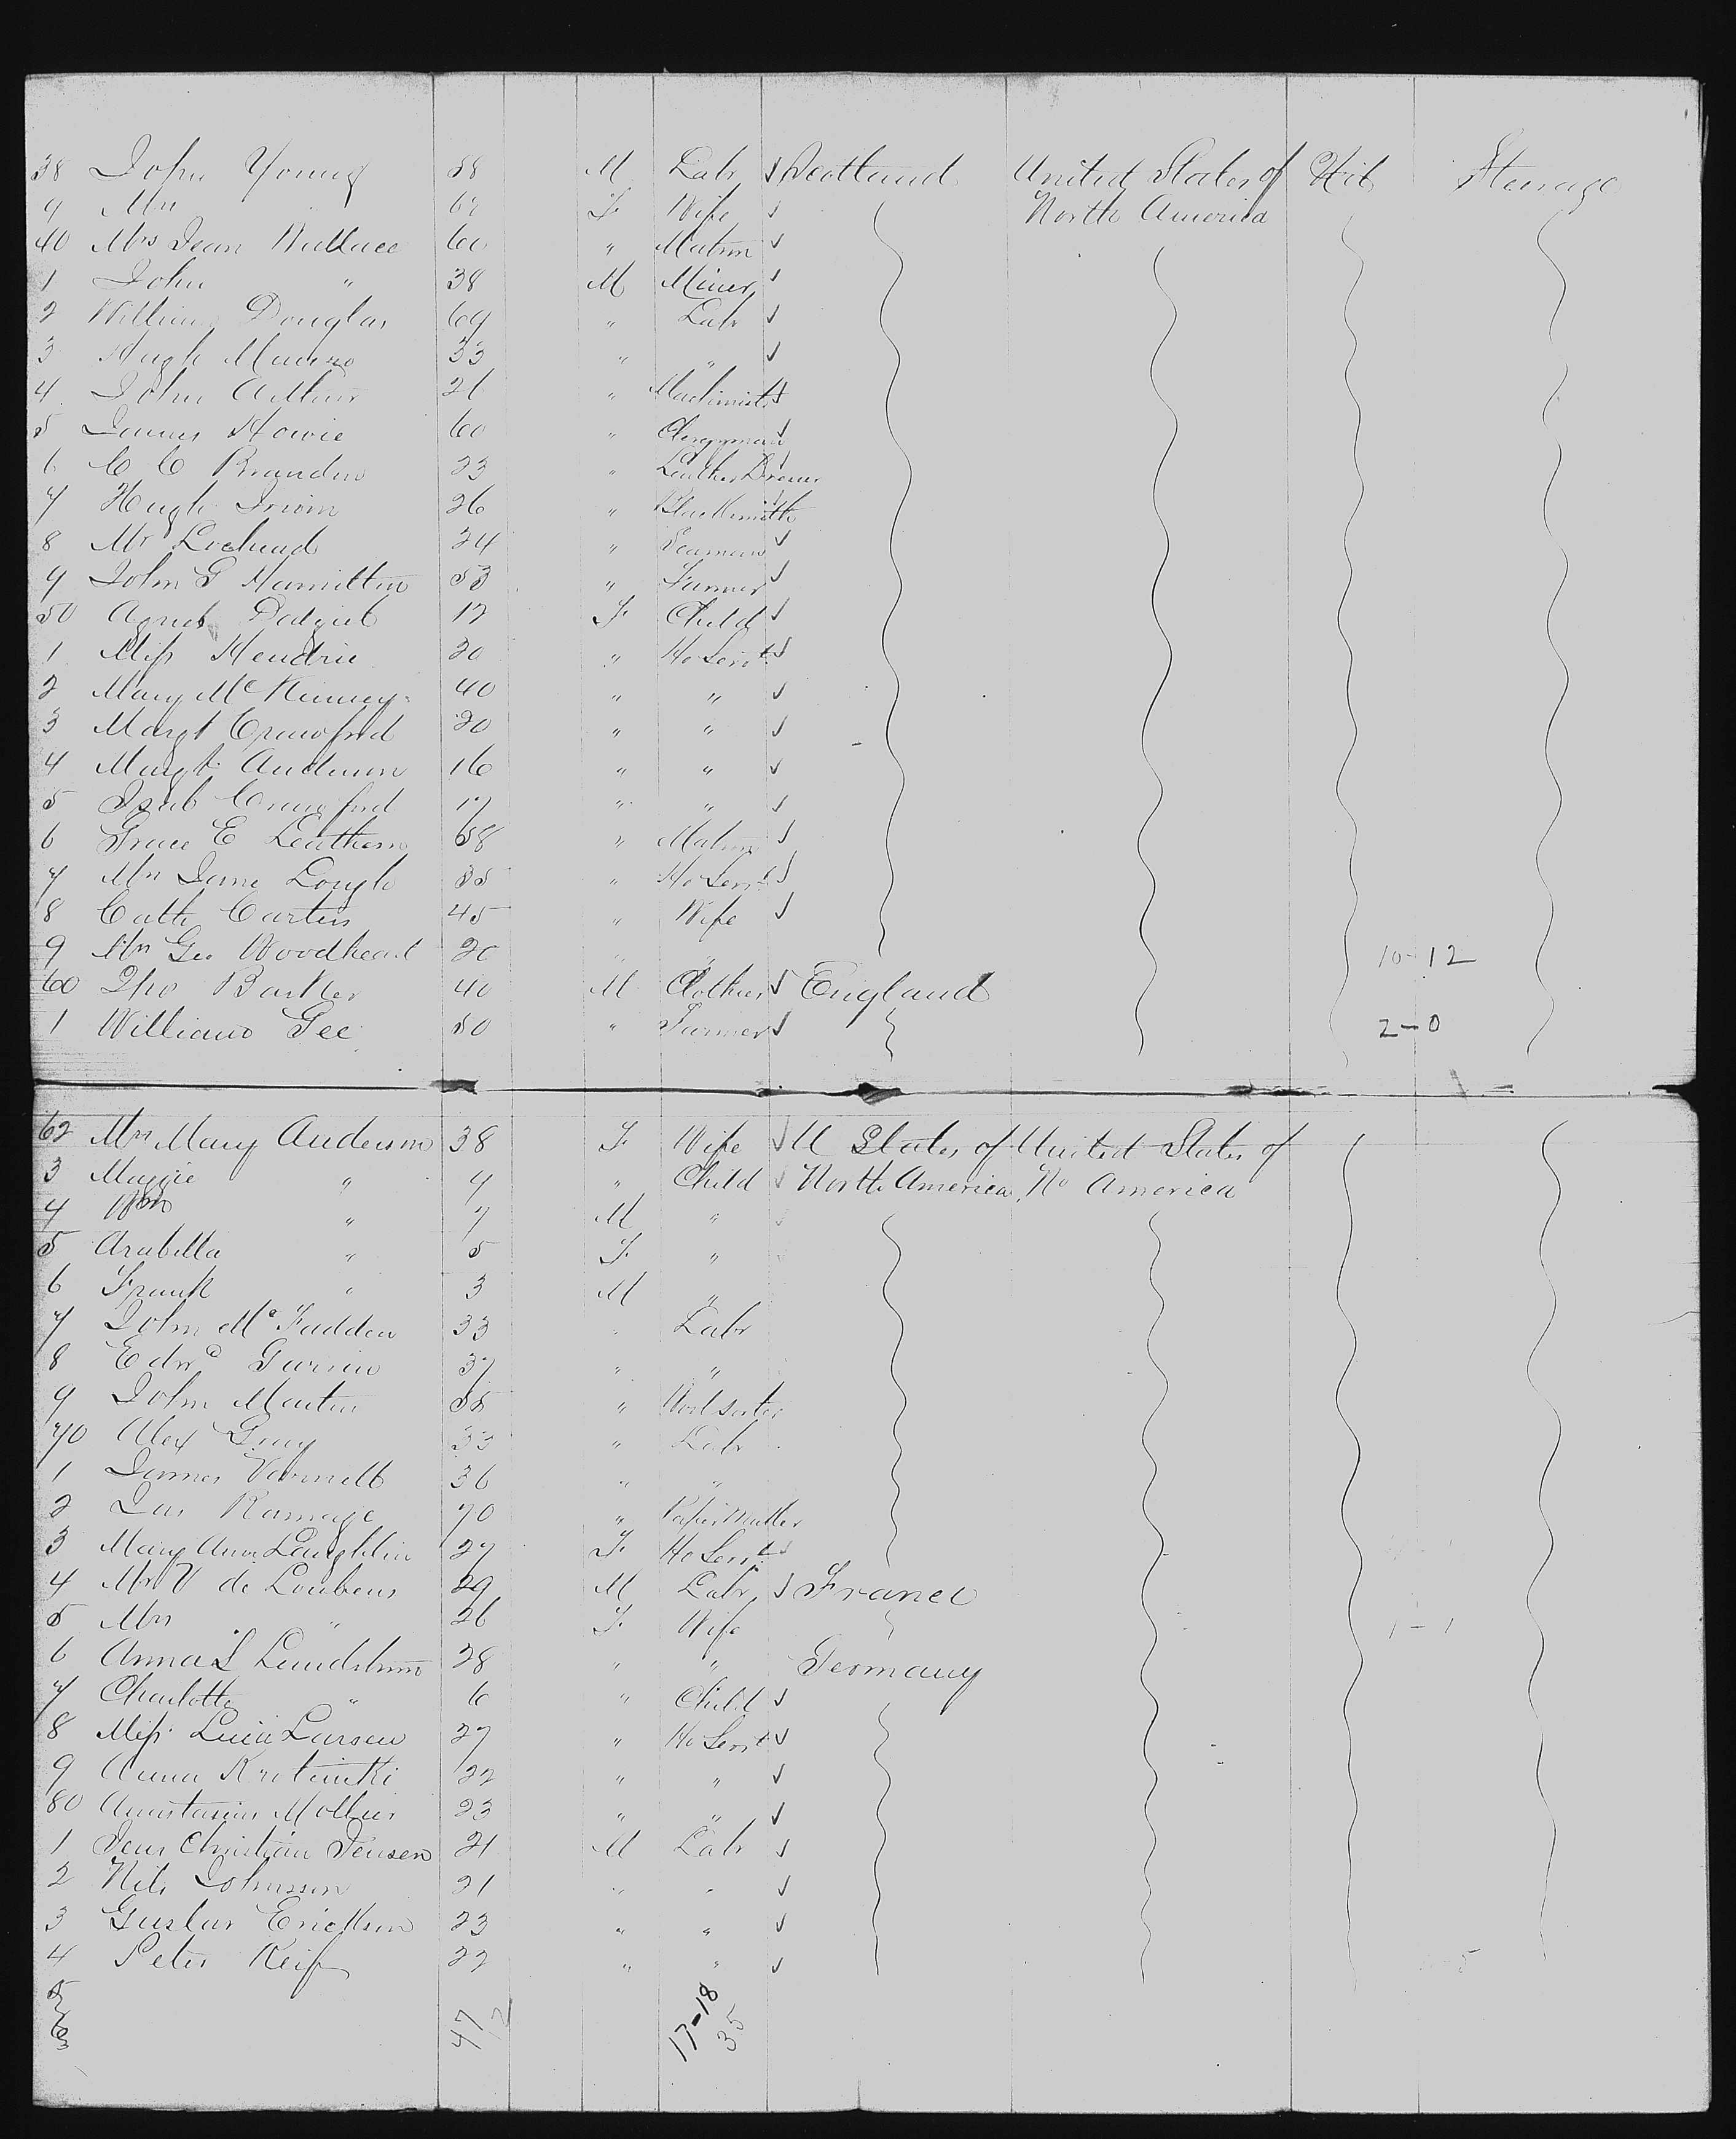 38 John Young 58 M Labr ✓ Scotland United States of Nil Steerage
9 Mrs " 62 F. Wife ✓ North America
40 Mrs Jean Wallace 60 " Matron ✓
1 John " 38 M Miner ✓
2 William Douglas 69 " Labr ✓
3 Hugh Munro 33 " " ✓
4 John Arthur 26 " Machinist ✓
5 James Howie 60 " Clergyman ✓
6 C C Brandon 23 " Leather Dresser
7 Hugh Irvin 26 " Blacksmith
8 Mr Lochead 24 " Seaman ✓
9 John G Hamilton 53 " Farmer ✓
50 Agnes 12 F. Child ✓
1 Miss Hendrie 20 " Ho Servt ✓
2 Mary McKinney 40 " " ✓
3 Margt Crawford 20 " " ✓
4 Margt Anderson 16 " " ✓
5 Isab Crawford 17 " " ✓
6 Grace E Leathem 68 " Matron ✓
7 Mrs Jane 35 " Ho Servt ✓
8 Cath Curtin 45 " Wife ✓
9 Mrs Geo Woodhead 20 " " 10-12
60 Tho Barker 40 M Clothier ✓ England
1 William Gee 50 " Farmer ✓ 2-0
62 Mrs Mary Anderson 38 F. Wife ✓ U States of United States of
3 Maggie " 9 " Child ✓ North America No America
4 Wm " 7 M "
5 Arabella " 5 F. "
6 Frank " 3 M "
7 John McFadden 33 " Labr
8 Edwd 37 " "
9 John Martin 35 " Woolsorter
70 Alex Gray 33 " Labr
1 James 36 " "
2 Jas Ramage 70 " Paper Maker
3 Mary Ann Laughlin 27 F. Ho Servt ✓
4 Mr V de Loubens 29 M Labr ✓ France
5 Mrs " 26 F. Wife 1-1
6 Anna L Lundstrom 28 " " Germany
7 Charlotte " 6 " Child ✓
8 Miss Larsen 27 " Ho Servt ✓
9 Anna 22 " " ✓
80 23 " " ✓
1 Jens Christian Jensen 21 M Labr ✓
2 Nils Johnsson 21 " " ✓
3 Gustav Erickson 23 " " ✓
4 Peter Keif 22 " " ✓
5
6
47
17-18
35